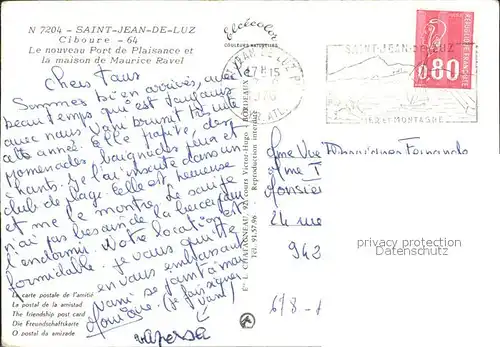 N 7204 - SAINT-JEAN-DE-LUZ
Ciboure - 64
Le nouveau Port de Plaisance et
la maison de Maurice Ravel
Elcécolor
COULEURS NATURELLES
SAINT-JEAN-DE-LUZ
MER ET MONTAGNE
17H15
0.80
Chers tous
Sommes bien arrivés, avec
beau temps qui est toujours
avec nous. Vani brunit très vite
cette année. Elle profite des
promenades baignades jeux et
chants. Je l'ai inscrite dans un
club de plage. Elle est heureuse
et me le montre. Le soir je
n'ai pas besoin de la bercer pour
l'endormir. Notre location est
formidable. Je vous quitte
en vous embrassant
Vani se joint à moi
Monique (Je fais signer
Vani)
Mme Vve Domingues Fernando
Mme
Monsieur
24 rue
942
privacy protection
Datenschutz
678 -
La carte postale de l'amitié
La postal de la amistad
The friendship post card
Die Freundschaftskarte
O postal da amizade
Éts L. CHATAGNEAU, 92, cours Victor-Hugo - BORDEAUX
Tél. 91.57.96 - Reproduction interdite